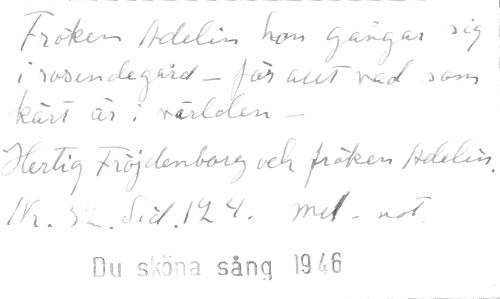 Fröken Adelin hon gångar sig
i rosendegård – för allt vad som
kärt är i världen –
Hertig Fröjdenborg och fröken Adelin.
Nr. 52. Sid. 124. mel - not.
Du sköna sång 1946